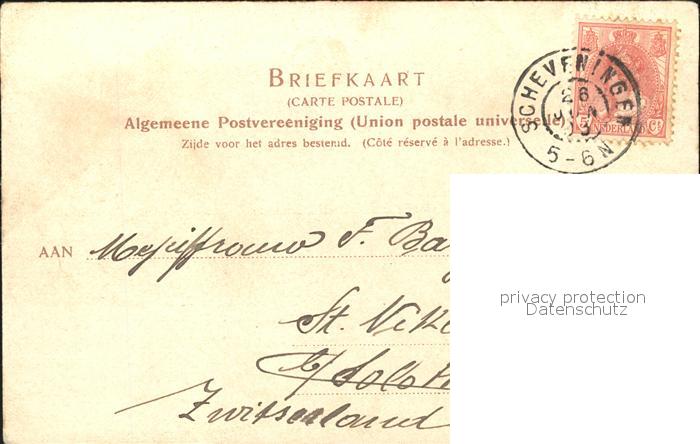 BRIEFKAART
(CARTE POSTALE)
Algemeene Postvereeniging (Union postale universelle
Zijde voor het adres bestemd. (Côté réservé à l'adresse.)
SCHEVENINGEN
26
03
5-6N
5 NEDERLAND Ct
AAN Mejuffrouw F. Ba
St. Nik
b/ Solot
Zwitserland
privacy protection
Datenschutz